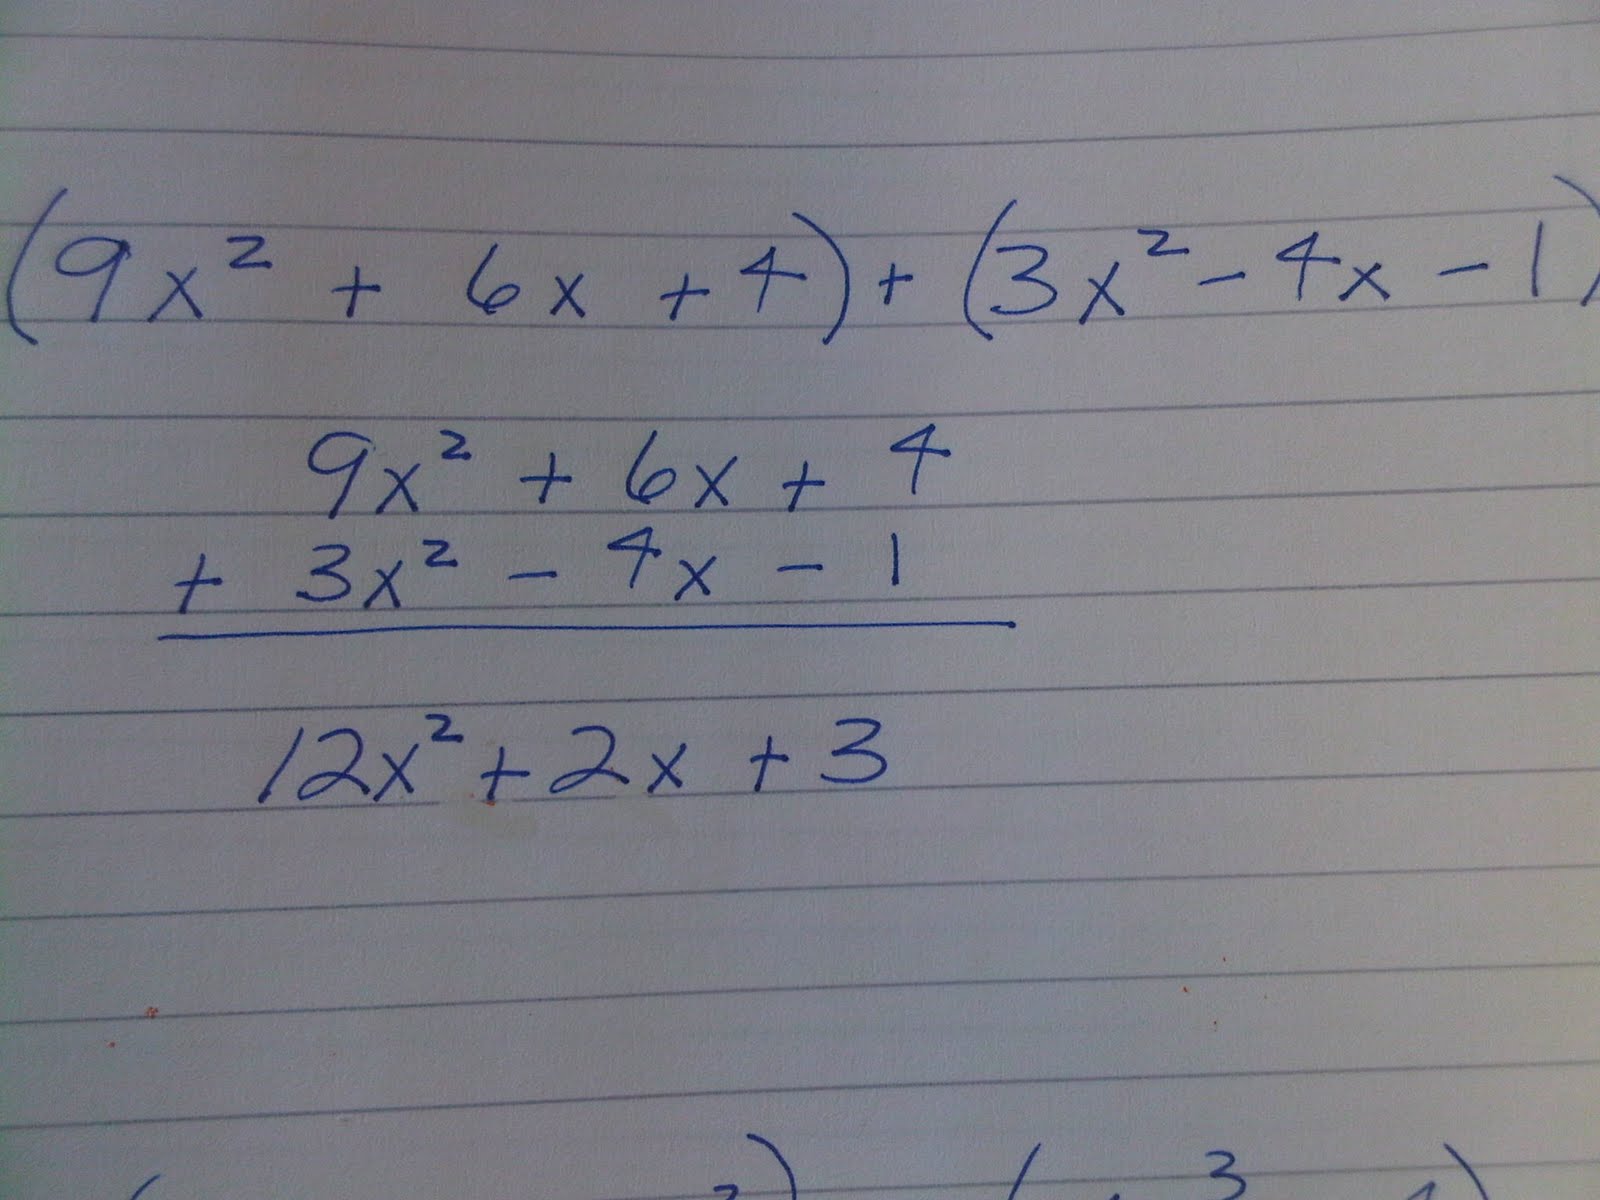 (9x² + 6x + 4) + (3x² - 4x - 1)
9x² + 6x + 4
+ 3x² - 4x - 1
12x² + 2x + 3